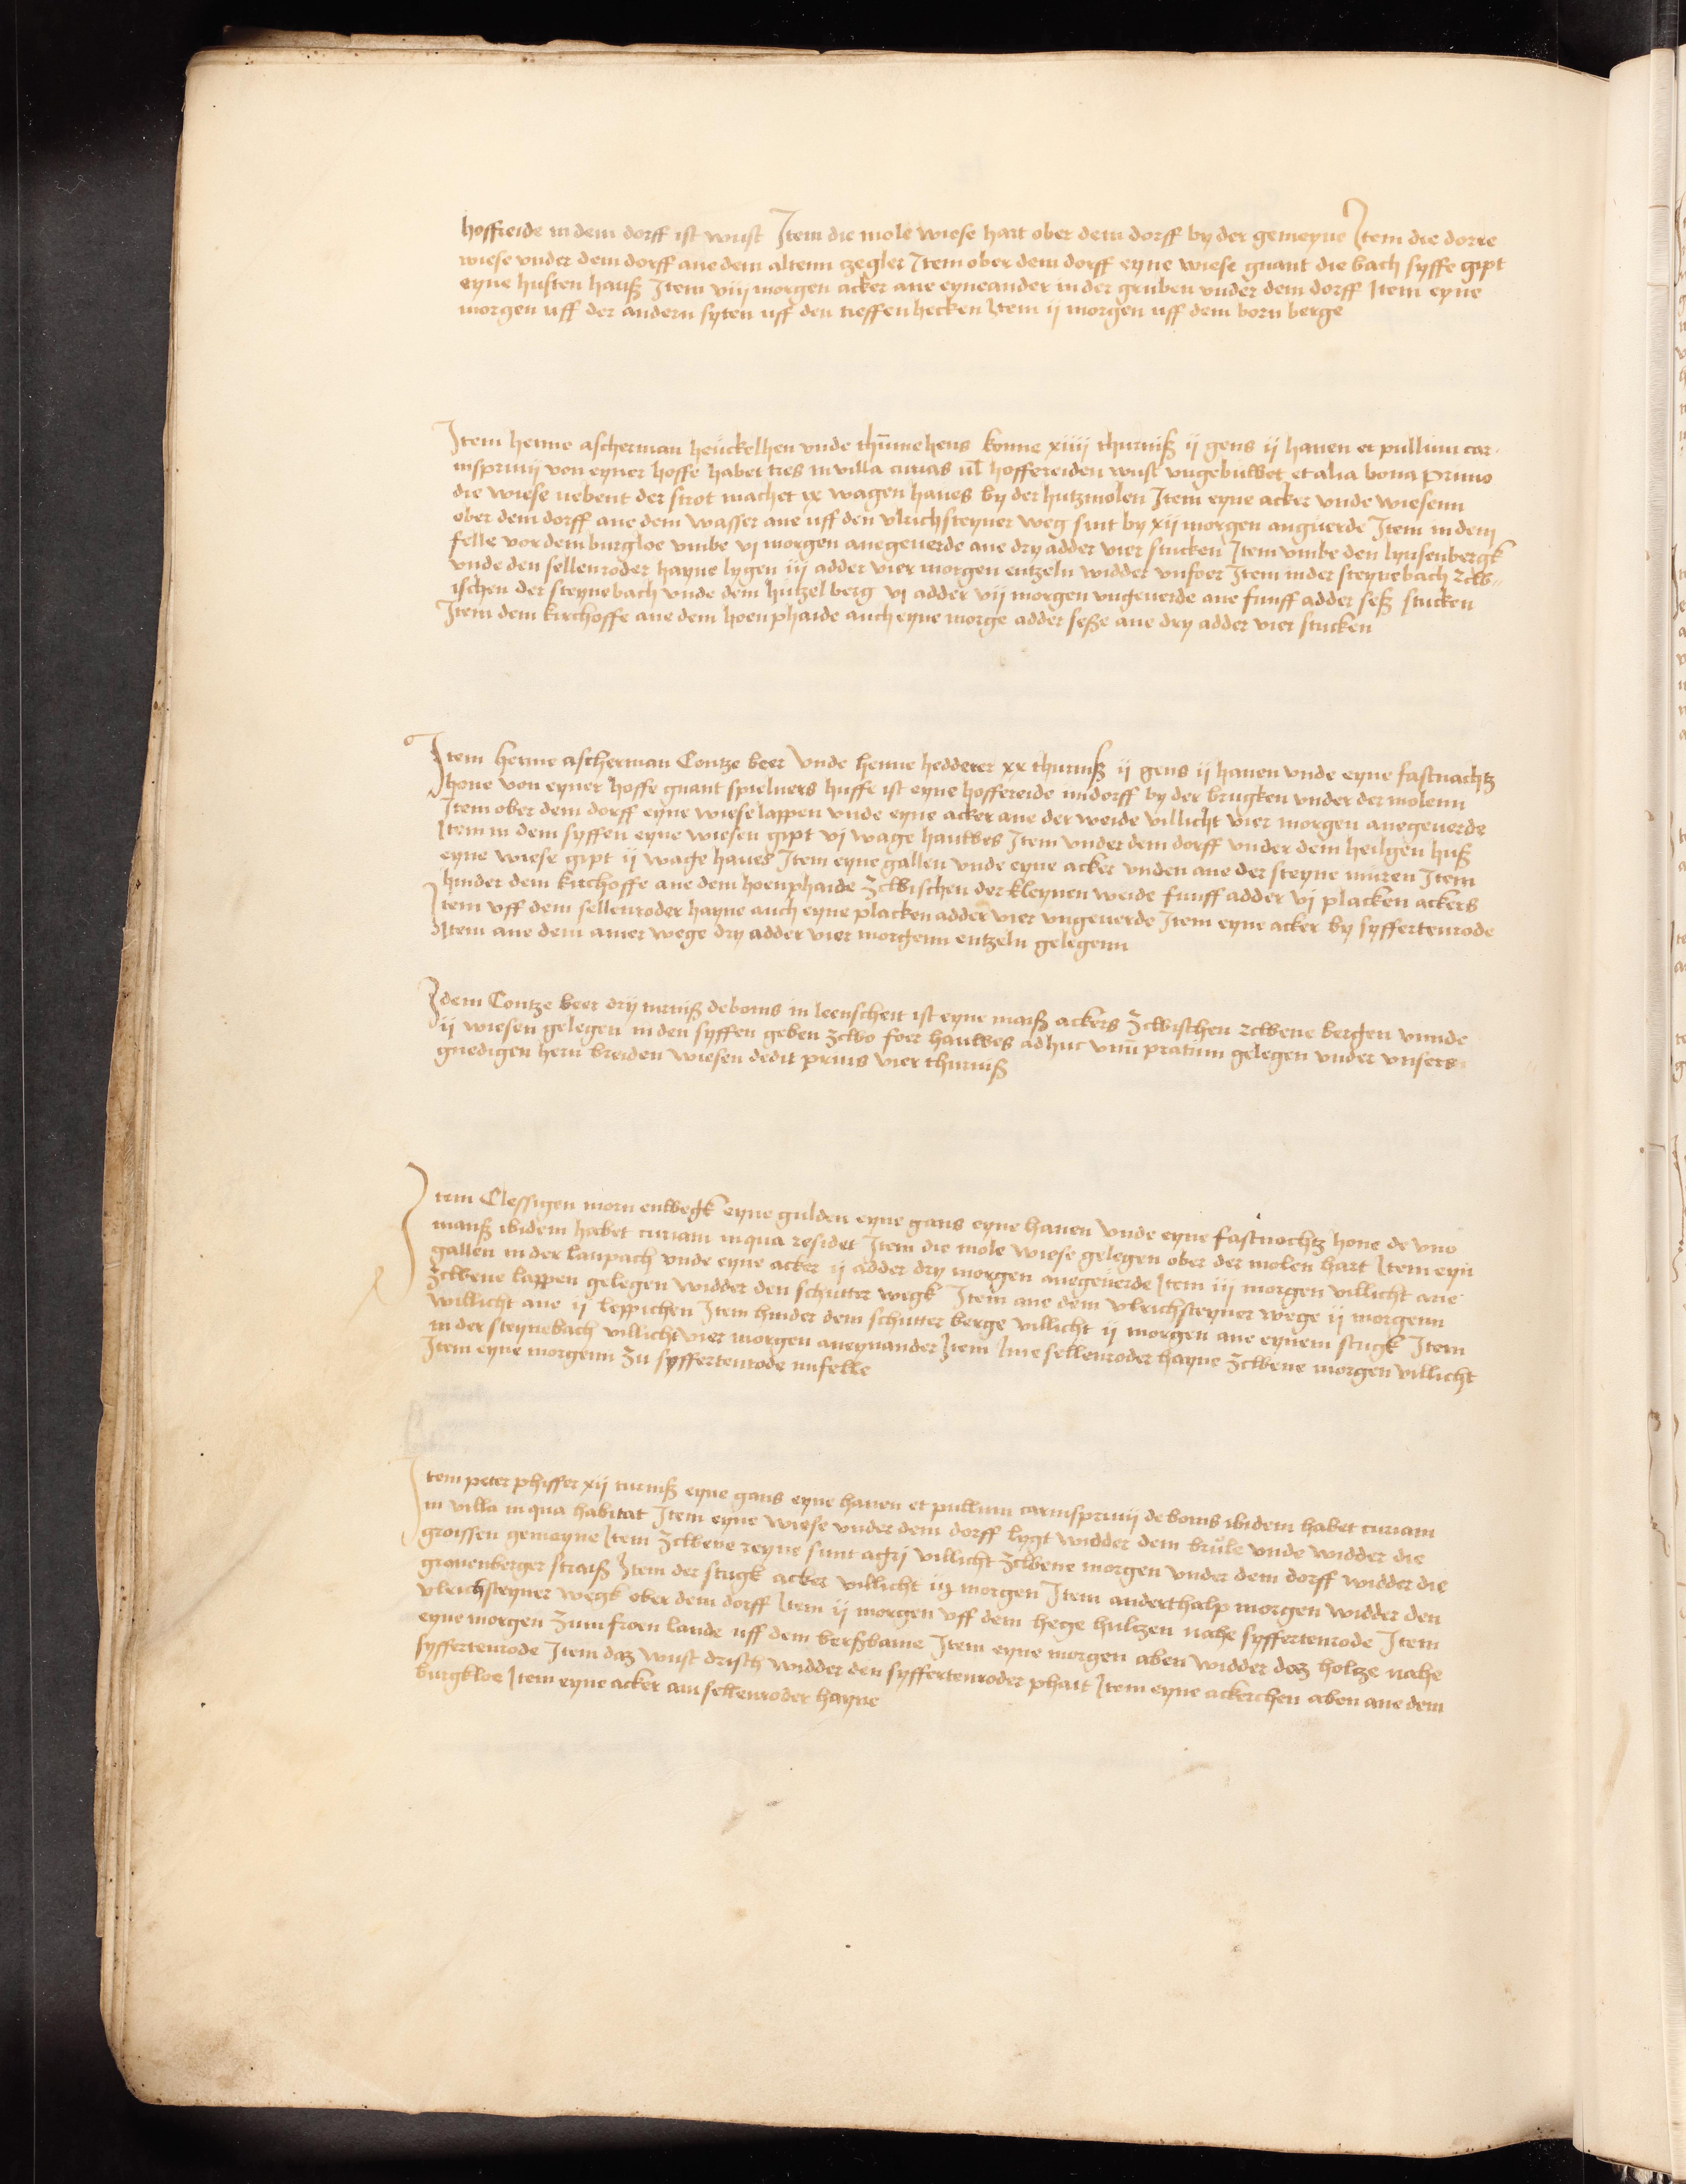 hoffreide in dem dorff ist wust Item die mole wiese hart ober dem dorff by der gemeyne Item die dorre
wiese vnder dem dorff ane dem altenn zegler Item ober dem dorff eyne wiese gnant die bach syffe gipt
eyne husten hauß Item viij morgen acker ane eyneander in der gruben vnder dem dorff Item eyne
morgen uff der andern syten uff den tieffen hecken Item ij morgen uff dem born berge
Item henne ascherman heuckelhen vnde thūme hens konne xiiij thurniß ij gens ij hanen et pullum car-
insprivij von eyner hoffe habet tres in villa curias vl hoffereiden wust vngebuwet et alia bona primo
die wiese nebent der strot machet ix wagen haues by der hutzmolen Item eyne acker vnde wiesenn
ober dem dorff ane dem wasser ane uff den vlrichsteyner weg sint by xij morgen anguerde Item in dem
felle vor dem burgloe vmbe vj morgen anegeuerde ane dry adder vier stucken Item vmbe den lynsenbergk
vnde den sellenroder hayne lygen iij adder vier morgen entzeln widder vnfoer Item in der steynebach zcw-
ischen der steynebach vnde dem hutzel berg vj adder vij morgen vngeuerde ane funff adder seß stucken
Item dem kirchoffe ane dem hoen phaide auch eyne morge adder seße ane dry adder vier stucken
Item henne ascherman Contze beer vnde henne hedderer xx thurniß ij gens ij hanen vnde eyne fastnachtz
hone von eyner hoffe gnant spielners huffe ist eyne hoffereide im dorff by der brugken vnder der molenn
Item ober dem dorff eyne wiese lappen vnde eyne acker ane der weide villicht vier morgen anegeuerde
Item in dem syffen eyne wiesen gipt vj wage hauwes Item vnder dem dorff vnder dem heilgen huß
eyne wiese gipt ij wage haues Item eyne gallen vnde eyne acker vnden ane der steyne muren Item
hinder dem kirchoffe ane dem hoenphaide zcwischen der kleynen weide funff adder vj placken ackers
Item vff dem sellenroder hayne auch eyne placken adder vier vngeuerde Item eyne acker by syffertenrode
Item ane dem amer wege dry adder vier morgenn entzeln gelegenn
Idem Contze beer drij turniß de bonis in leenscheit ist eyne maiß ackers zcwischen zcwene bergen vnnde
ij wiesen gelegen in den syffen geben zcwo foer hauwes adhuc vnū pratum gelegen vnder vnsers
gnedigen hern breiden wiesen dedit prius vier thurniß
Item Clessigen morn enwegk eyne gulden eyne gans eyne hanen vnde eyne fastnochtz hone de vno
manß ibidem habet curiam in qua residet Item die mole wiese gelegen ober der molen hart Item eyn
gallen in der laupach vnde eyne acker ij adder dry morgen anegeuerde Item iij morgen villicht ane
zcwene lappen gelegen widder den schutter wegk Item ane dem vlrichsteyner wege ij morgenn
willicht ane ij leppichen Item hinder dem schutter berge villicht ij morgen ane eynem stugk Item
in der steynebach villicht vier morgen aneynander Item Ime sellenroder hayne zcwene morgen villicht
Item eyne morgenn zu syffertenrode im felle
Item peter phiffer xij turniß eyne gans eyne hanen et pullum carnisprivij de bonis ibidem habet curiam
in villa in qua habitat Item eyne wiese vnder dem dorff lygt widder dem brule vnde widder die
groissen gemeyne Item zcwene reyne sunt agri villicht zcwene morgen vnder dem dorff widder die
gronenberger straiß Item der stugk acker villicht iij morgen Item anderthalp morgen widder den
vlrichsteyner wegk ober dem dorff Item ij morgen vff dem hege hultzen nahe syffertenrode Item
eyne morgen zum froen lande uff dem berßbame Item eyne morgen aben widder daz holtze nahe
syffertenrode Item daz wust drisch widder den syffertenroder phait Item eyne ackerchen aben ane dem
burgkloe Item eyne acker am sellenroder hayne